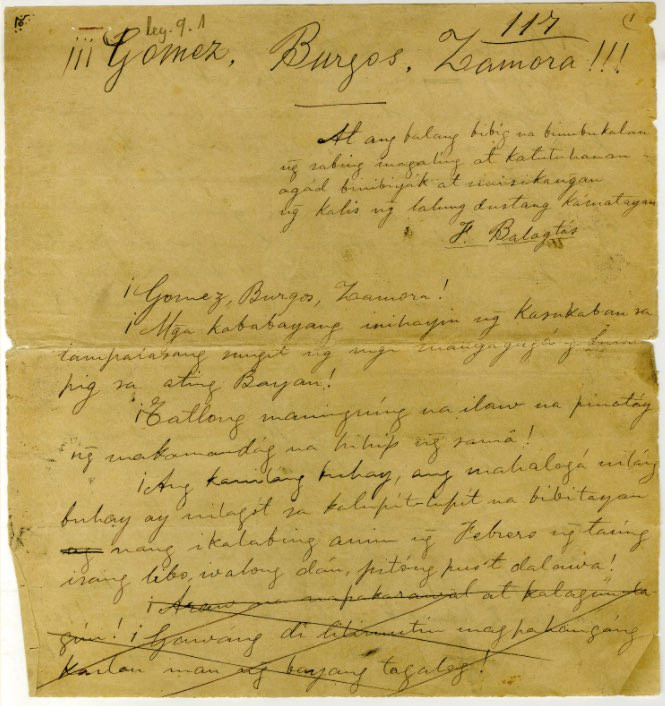 leg. 9.1
117
¡¡¡Gomez, Burgos, Zamora!!!
At ang balang bibig na binubukalan
ng̃ sabing magaling at katutuhanan
agád binibiyák at sinisikang̃an
ng̃ kalis ng̃ lalung dustang kamatayan
F. Balagtás
¡Gomez, Burgos, Zamora!
¡Mga kababayang inihayin ng̃ kasukaban sa
lampatasang sung̃it ng̃ mg̃a
pig sa ating Bayan!
¡Tatlong maningníng na ilaw na pinatáy
ng̃ makamandág na hihip ng̃ samâ!
¡Ang kanilang buhay, ang mahalagá niláng
buhay ay nilagót sa kalupít-lupít na bibitayan
ng nang ikalabing anim ng̃ Febrero ng̃ taóng
isang libo, walong daan, pitóng pu't dalawa!
¡Araw na napakarawal at kalagím-la
gím! ¡Gawáng di lilimutin magpahangáng
kailan man ng bayang tagalog!